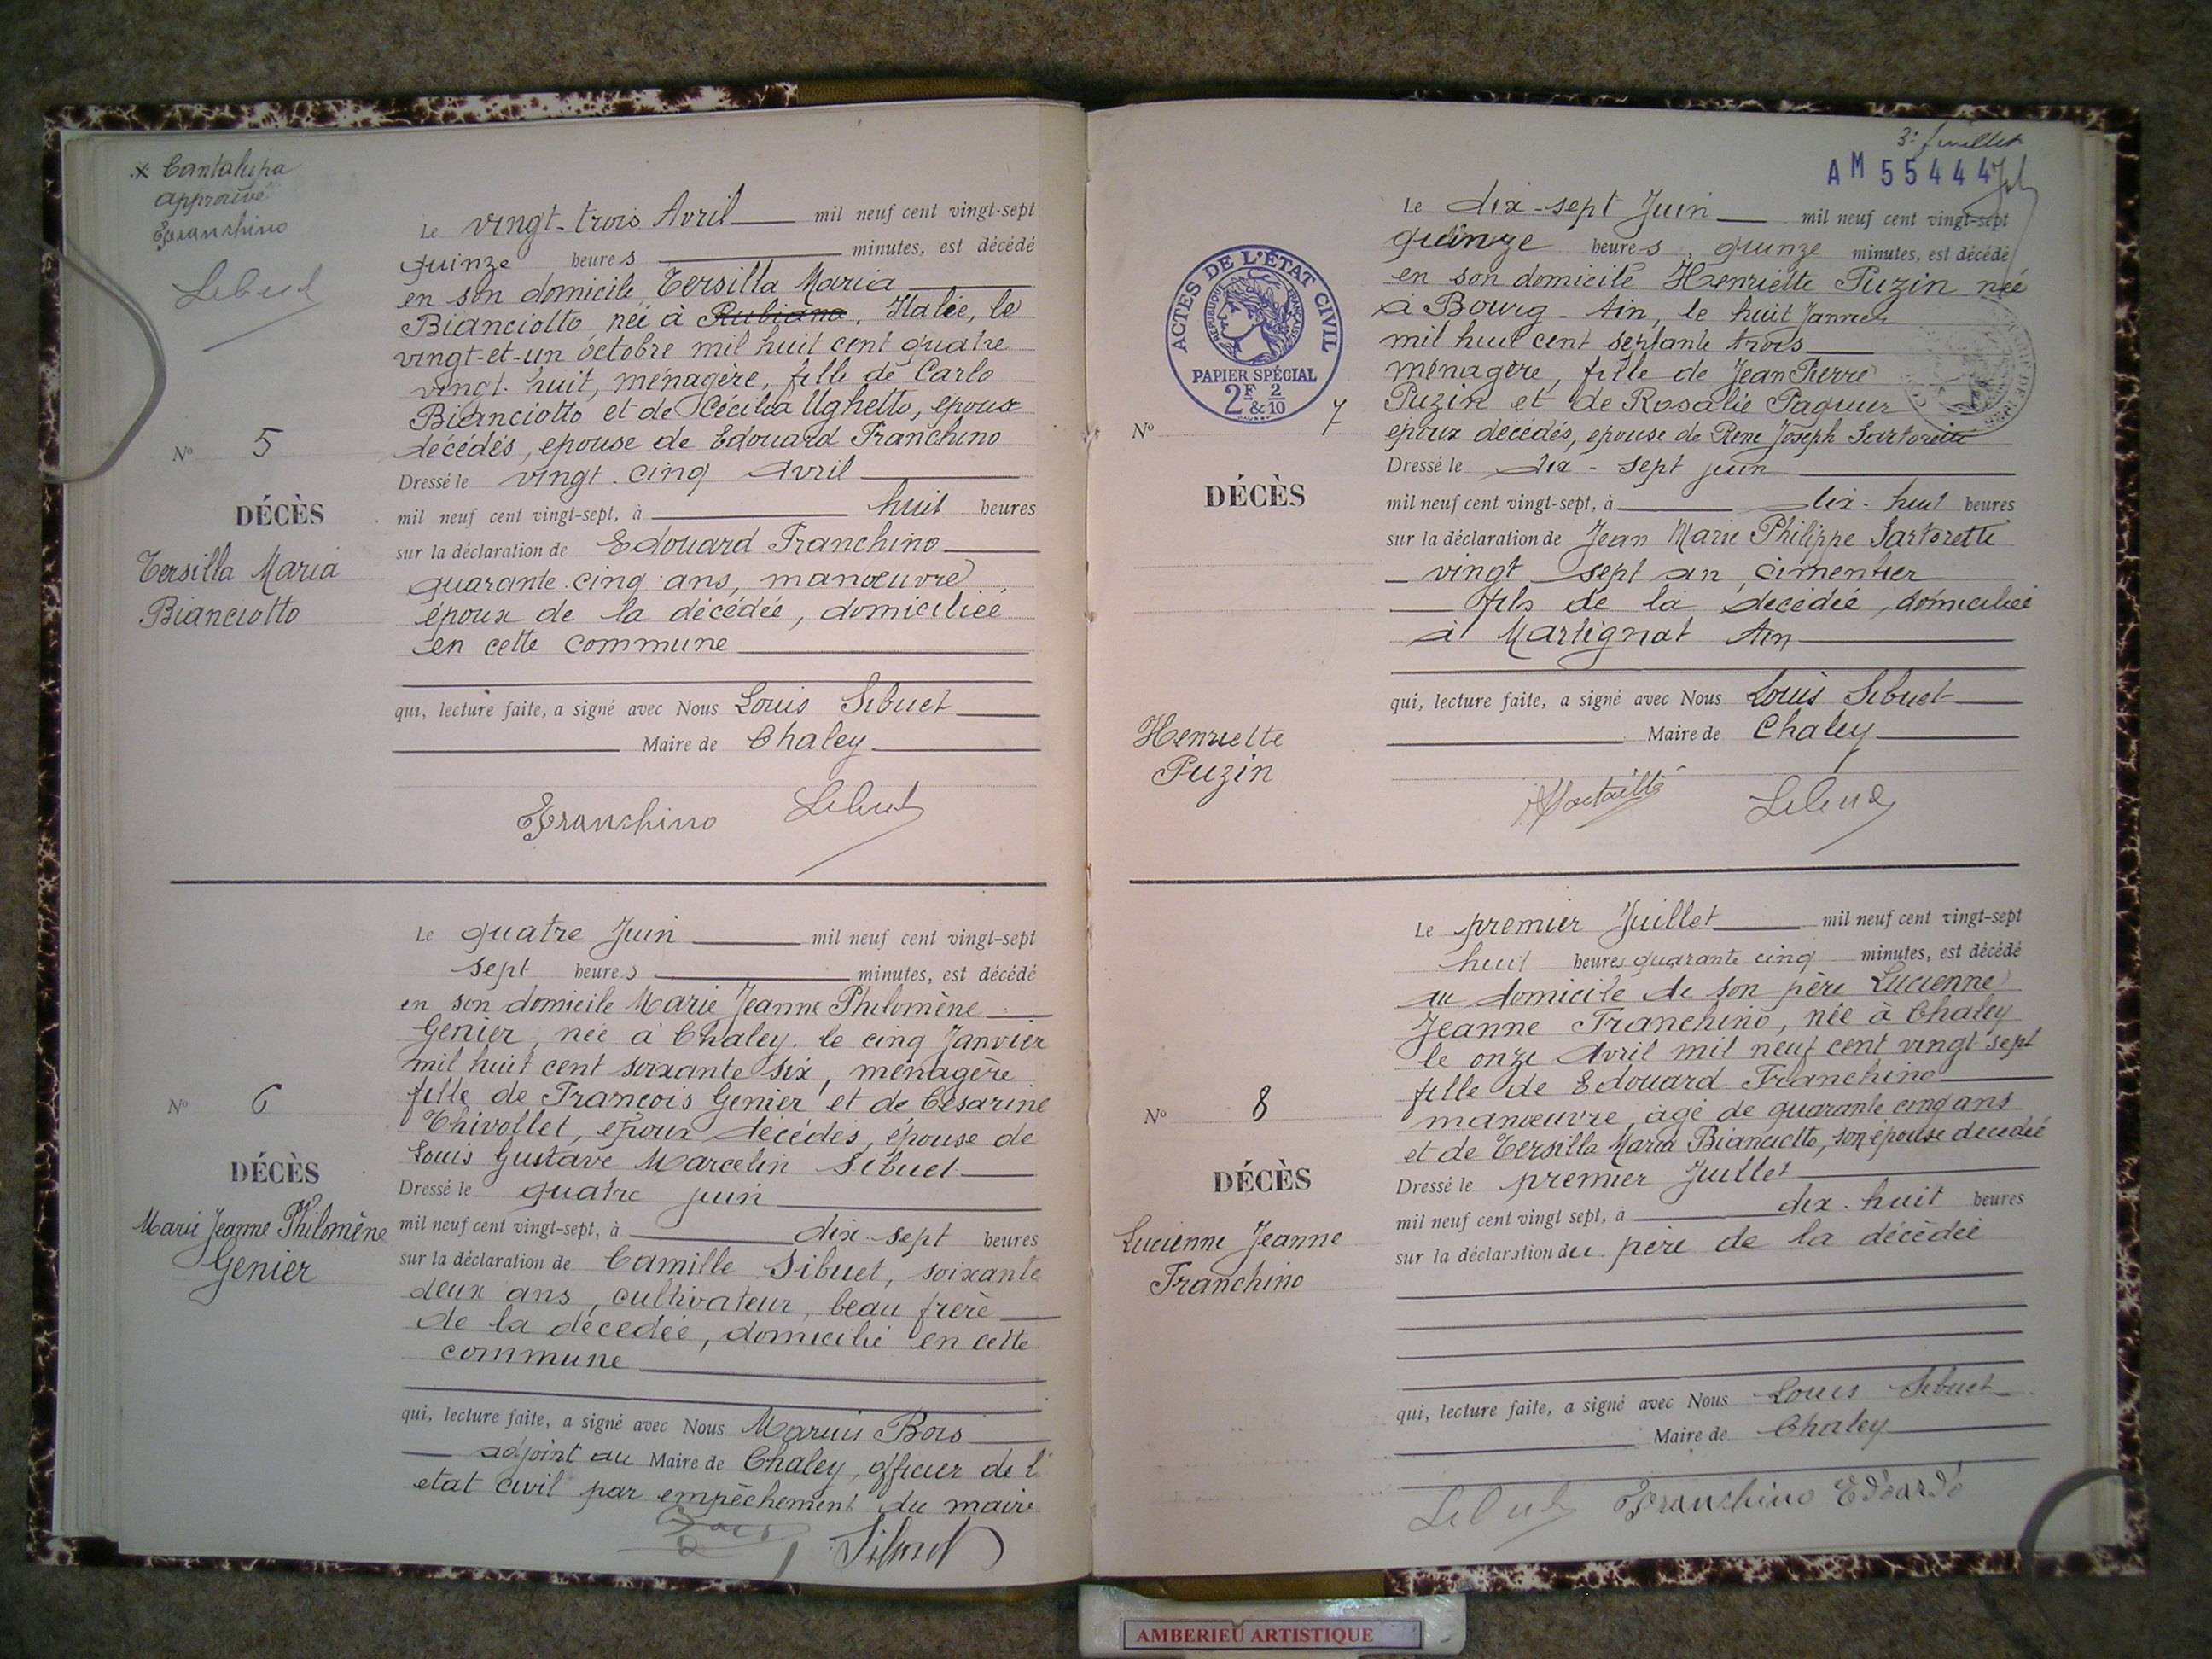 x Cantalupa
approuvé
Franchino
Sibuet
Le vingt-trois Avril mil neuf cent vingt-sept
quinze heures minutes, est décédé
en son domicile Tersilla Maria
Bianciotto née à Rubiana, Italie, le
vingt-et-un octobre mil huit cent quatre
vingt-huit, ménagère, fille de Carlo
Bianciotto et de Cécilia Ughetto, epoux
décédés, epouse de Edouard Franchino
Dressé le vingt-cinq Avril
mil neuf cent vingt-sept, à huit heures
sur la déclaration de Edouard Franchino
quarante-cinq ans, manœuvre
époux de la décédée, domiciliée
en cette commune
qui, lecture faite, a signé avec Nous Louis Sibuet
Maire de Chaley
Franchino Sibuet
No 5
DÉCÈS
Tersilla Maria
Bianciotto
Le quatre Juin mil neuf cent vingt-sept
sept heures minutes, est décédé
en son domicile Marie Jeanne Philomène
Genier, née à Chaley, le cinq Janvier
mil huit cent soixante six, ménagère
fille de François Genier et de Césarine
Chivollet, époux décédés, épouse de
Louis Gustave Marcelin Sibuet
Dressé le quatre juin
mil neuf cent vingt-sept, à dix-sept heures
sur la déclaration de Camille Sibuet, soixante
deux ans, cultivateur, beau frère
de la décédée, domicilié en cette
commune
qui, lecture faite, a signé avec Nous Marius Bois
adjoint au Maire de Chaley, officier de l'
etat civil par empêchement du maire
Bois Sibuet
No 6
DÉCÈS
Marie Jeanne Philomène
Genier
3e feuillet
AM 55444
ACTES DE L'ÉTAT CIVIL
RÉPUBLIQUE FRANÇAISE
PAPIER SPÉCIAL
2F & 2/10
Le dix-sept Juin mil neuf cent vingt-sept
quinze heures quinze minutes, est décédé
en son domicile Henriette Puzin née
à Bourg-Ain, le huit Janvier
mil huit cent septante trois
ménagère, fille de Jean Pierre
Puzin et de Rosalie Paquier
epoux décédés, epouse de Rene Joseph Sartoretti
Dressé le dix-sept juin
mil neuf cent vingt-sept, à dix-huit heures
sur la déclaration de Jean Marie Philippe Sartoretti
vingt sept an, cimentier
fils de la décédée, domiciliée
à Martignat Ain
qui, lecture faite, a signé avec Nous Louis Sibuet
Maire de Chaley
Sibuet
No 7
DÉCÈS
Henriette
Puzin
Le premier Juillet mil neuf cent vingt-sept
huit heures quarante cinq minutes, est décédé
au domicile de son père Lucienne
Jeanne Franchino, née à Chaley
le onze Avril mil neuf cent vingt sept
fille de Edouard Franchino
manœuvre âgé de quarante cinq ans
et de Tersilla Maria Bianciotto, son épouse décédée
Dressé le premier Juillet
mil neuf cent vingt sept, à dix-huit heures
sur la déclaration du père de la décédée
qui, lecture faite, a signé avec Nous Louis Sibuet
Maire de Chaley
Sibuet Franchino Edoardo
No 8
DÉCÈS
Lucienne Jeanne
Franchino
AMBERIEU ARTISTIQUE